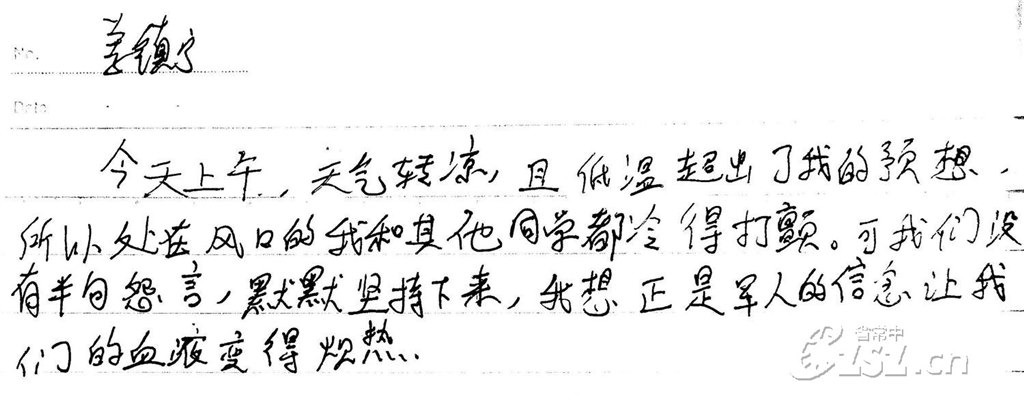 No.
姜镇宁
Date
今天上午,天气转凉,且低温超出了我的预想,
所以处在风口的我和其他同学都冷得打颤。可我们没
有半句怨言,默默坚持下来,我想正是军人的信念让我
们的血液变得炽热.
省常中
CZSZ.cn